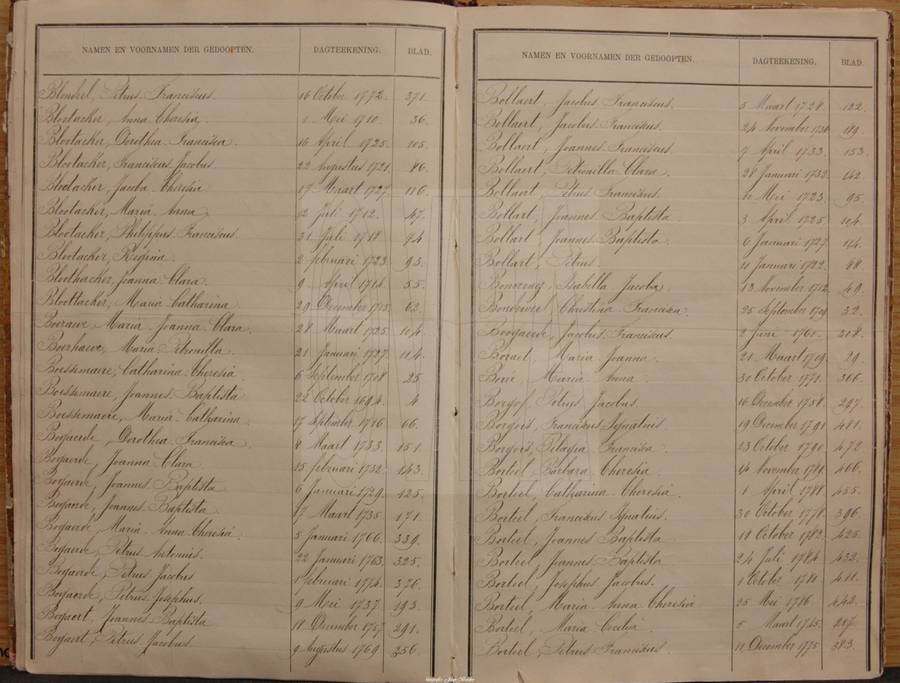 NAMEN EN VOORNAMEN DER GEDOOPTEN. DAGTEEKENING. BLAD.
Blondeel, Petrus Franciscus. 16 October 1772. 371.
Blootacker, Anna Theresia. 1 Mei 1710. 36.
Blootacker, Dorothea Francisca. 16 April 1725. 105.
Blootacker, Franciscus Jacobus. 22 Augustus 1721. 86.
Blootacker, Jacoba Theresia. 17 Maart 1727. 116.
Blootacker, Maria Anna. 2 Juli 1712. 47.
Blootacker, Philippus Franciscus. 21 Juli 1718. 74.
Blootacker, Regina. 2 februari 1723. 93.
Bloothacker, Joanna Clara. 9 April 1714. 55.
Bloottacker, Maria Catharina. 29 December 1715. 62.
Boerave Maria Joanna Clara. 28 Maart 1725. 104.
Boerhaeve, Maria Petronilla. 21 Januari 1727. 114.
Boeskemaire, Catharina Theresia 6 September 1708. 25.
Boeskemaere, Joannes Baptista 22 October 1694. 4.
Boeskemaere, Maria Catharina 17 September 1716. 66.
Bogaerde, Dorothea Francisca. 9 Maart 1733. 151.
Bogaerde, Joanna Clara. 15 februari 1732. 143.
Bogaerde, Joannes Baptista 6 Januari 1729. 125.
Bogaerde, Joannes Baptista 17 Maart 1735. 171.
Bogaerde Maria Anna Theresia. 5 Januari 1766. 339.
Bogaerde, Petrus Antonius. 22 Januari 1763. 325.
Bogaerde, Petrus Jacobus 1 februari 1774. 376.
Bogaerde, Petrus Josephus. 9 Mei 1737. 193.
Bogaert, Joannes Baptista 18 December 1757. 291.
Bogaert, Petrus Jacobus. 9 Augustus 1769. 356.
NAMEN EN VOORNAMEN DER GEDOOPTEN. DAGTEEKENING. BLAD.
Bollaert, Jacobus Franciscus. 5 Maart 1728. 122.
Bollaert, Jacobus Franciscus. 24 November 1738. 189.
Bollaert, Joannes Franciscus. 7 April 1733. 153.
Bollaert, Petronilla Clara. 28 Januari 1732. 142.
Bollaert Petrus Franciscus. Mei 1723. 95.
Bollart, Joannes Baptista 3 April 1725. 104.
Bollart Joannes Baptista. 6 Januari 1727. 114.
Bollart, Petrus. 11 Januari 1722. 88.
Isabella Jacoba. 13 November 1712. 49.
Christina Francisca. 25 September 1709. 32.
Boogaerde, Jacobus Franciscus. 2 Juni 1760. 308.
Maria Joanna. 21 Maart 1709. 29.
Maria Anna. 30 October 1771. 366.
Petrus Jacobus. 16 December 1758. 297.
Borgois, Franciscus Ignatius 19 December 1791. 481.
Borgois, Pelagia Francisca. 23 October 1790. 472.
Borteel, Barbara Theresia. 14 November 1789. 466.
Borteel, Catharina Theresia. 1 April 1788. 455.
Borteel, Franciscus Ignatius. 30 October 1778. 396.
Borteel, Joannes Baptista. 19 October 1782. 425.
Borteel Joannes Baptista 24 Juli 1784. 433.
Borteel, Josephus Jacobus. 1 October 1780. 411.
Borteel, Maria Anna Theresia 25 Mei 1786. 442.
Borteel, Maria Cecilia. 5 Maart
Borteel, Petrus Franciscus. 11 December 1775. 383.